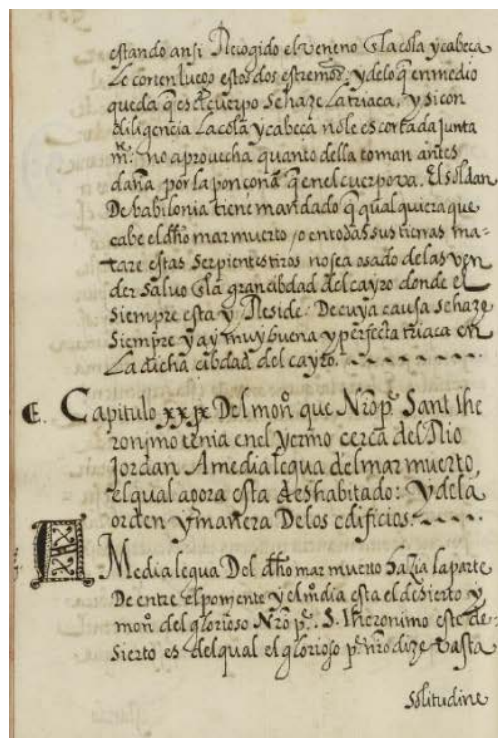 estando ansi Recogido el veneno Gla cola y cabeça
Le corten luego estos dos estremos: y delo q̃ enmedio
queda q̃ es el cuerpo se haze La triaca, y si con
diligencia La cola y cabeça nole es cortada junta
mẽ. no aprovecha quanto della toman antes
daña por la ponçoña q̃ enel cuerpo va. El soldan
De babilonia tiene mandado q̃ qual quiera que
cabe el dh̃o mar muerto / o entodas sus tierras ma=
tare estas serpientes tiros no sea osado delas ven
der salvo Gla gran cibdad del cayro donde el
siempre esta y Reside: De cuya causa se haze
siempre y ay muy buena y perfecta triaca en
La dicha cibdad del cayro.
C. Capitulo xxix Del moñ que Nr̃o p̃. Sant Ihe
ronimo tenia enel yermo cerca del Rio
Jordan A media legua del mar muerto,
el qual agora esta deshabitado: Y dela
orden y manera Delos edificios.
A Media legua Del dh̃o mar muerto hazia la parte
De entre el ponjente y el m̃dia esta el desierto y
moñ del glorioso Nr̃o p̃. S. Iheronimo este de-
sierto es del qual el glorioso p̃. nr̃o dize vasta
solitudine